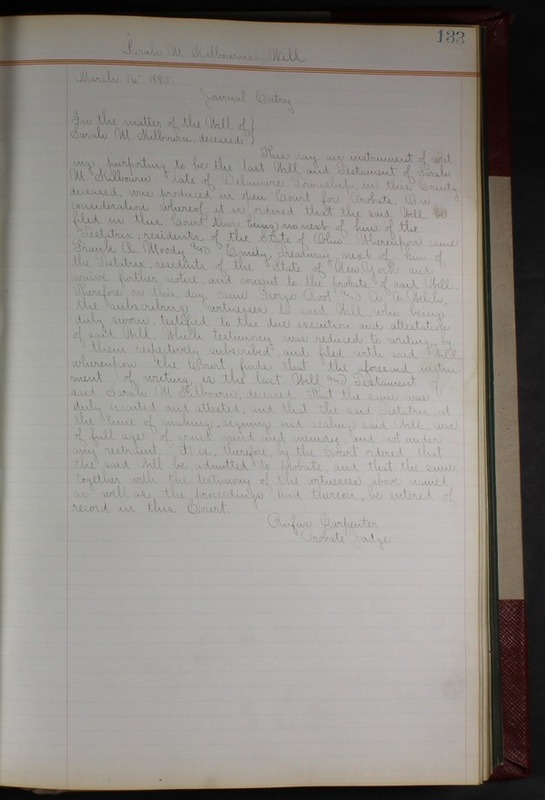 133
Sarah M Kilbourn Will
March 16 1885
Journal Entry
In the matter of the Will of }
Sarah M Kilbourn, deceased }
This day an instrument of writ
ing purporting to be the last Will and Testament of Sarah
M Kilbourn late of Delaware Township, in this County
deceased, was produced in open Court for Probate. On
consideration whereof it is ordered that the said Will be
filed in this Court there being no next of kin of the
Testatrix, residents of the State of Ohio Whereupon came
Frank A. Moody and Treadway, next of kin of
the Testatrix, residents of the State of New York and
waive further notice, and consent to the probate of said Will.
Therefore on this day came George Root and
the subscribing witnesses to said Will, who being
duly sworn, testified to the due execution and attestation
of said Will. Which testimony was reduced to writing, by
them respectively subscribed and filed with said Will
whereupon the Court finds that the aforesaid instru-
ment of writing is the last Will and Testament of
said Sarah M Kilbourn, deceased. That the same was
duly executed and attested, and that the said Testatrix at
the time of making, signing and sealing said Will, was
of full age of sound mind and memory and not under
any restraint. It is, therefore by the Court ordered that
the said Will be admitted to probate and that the same,
together with the testimony of the witnesses above named
as well as, the proceedings had thereon, be entered of
record in this Court.
Rufus Carpenter
Probate Judge